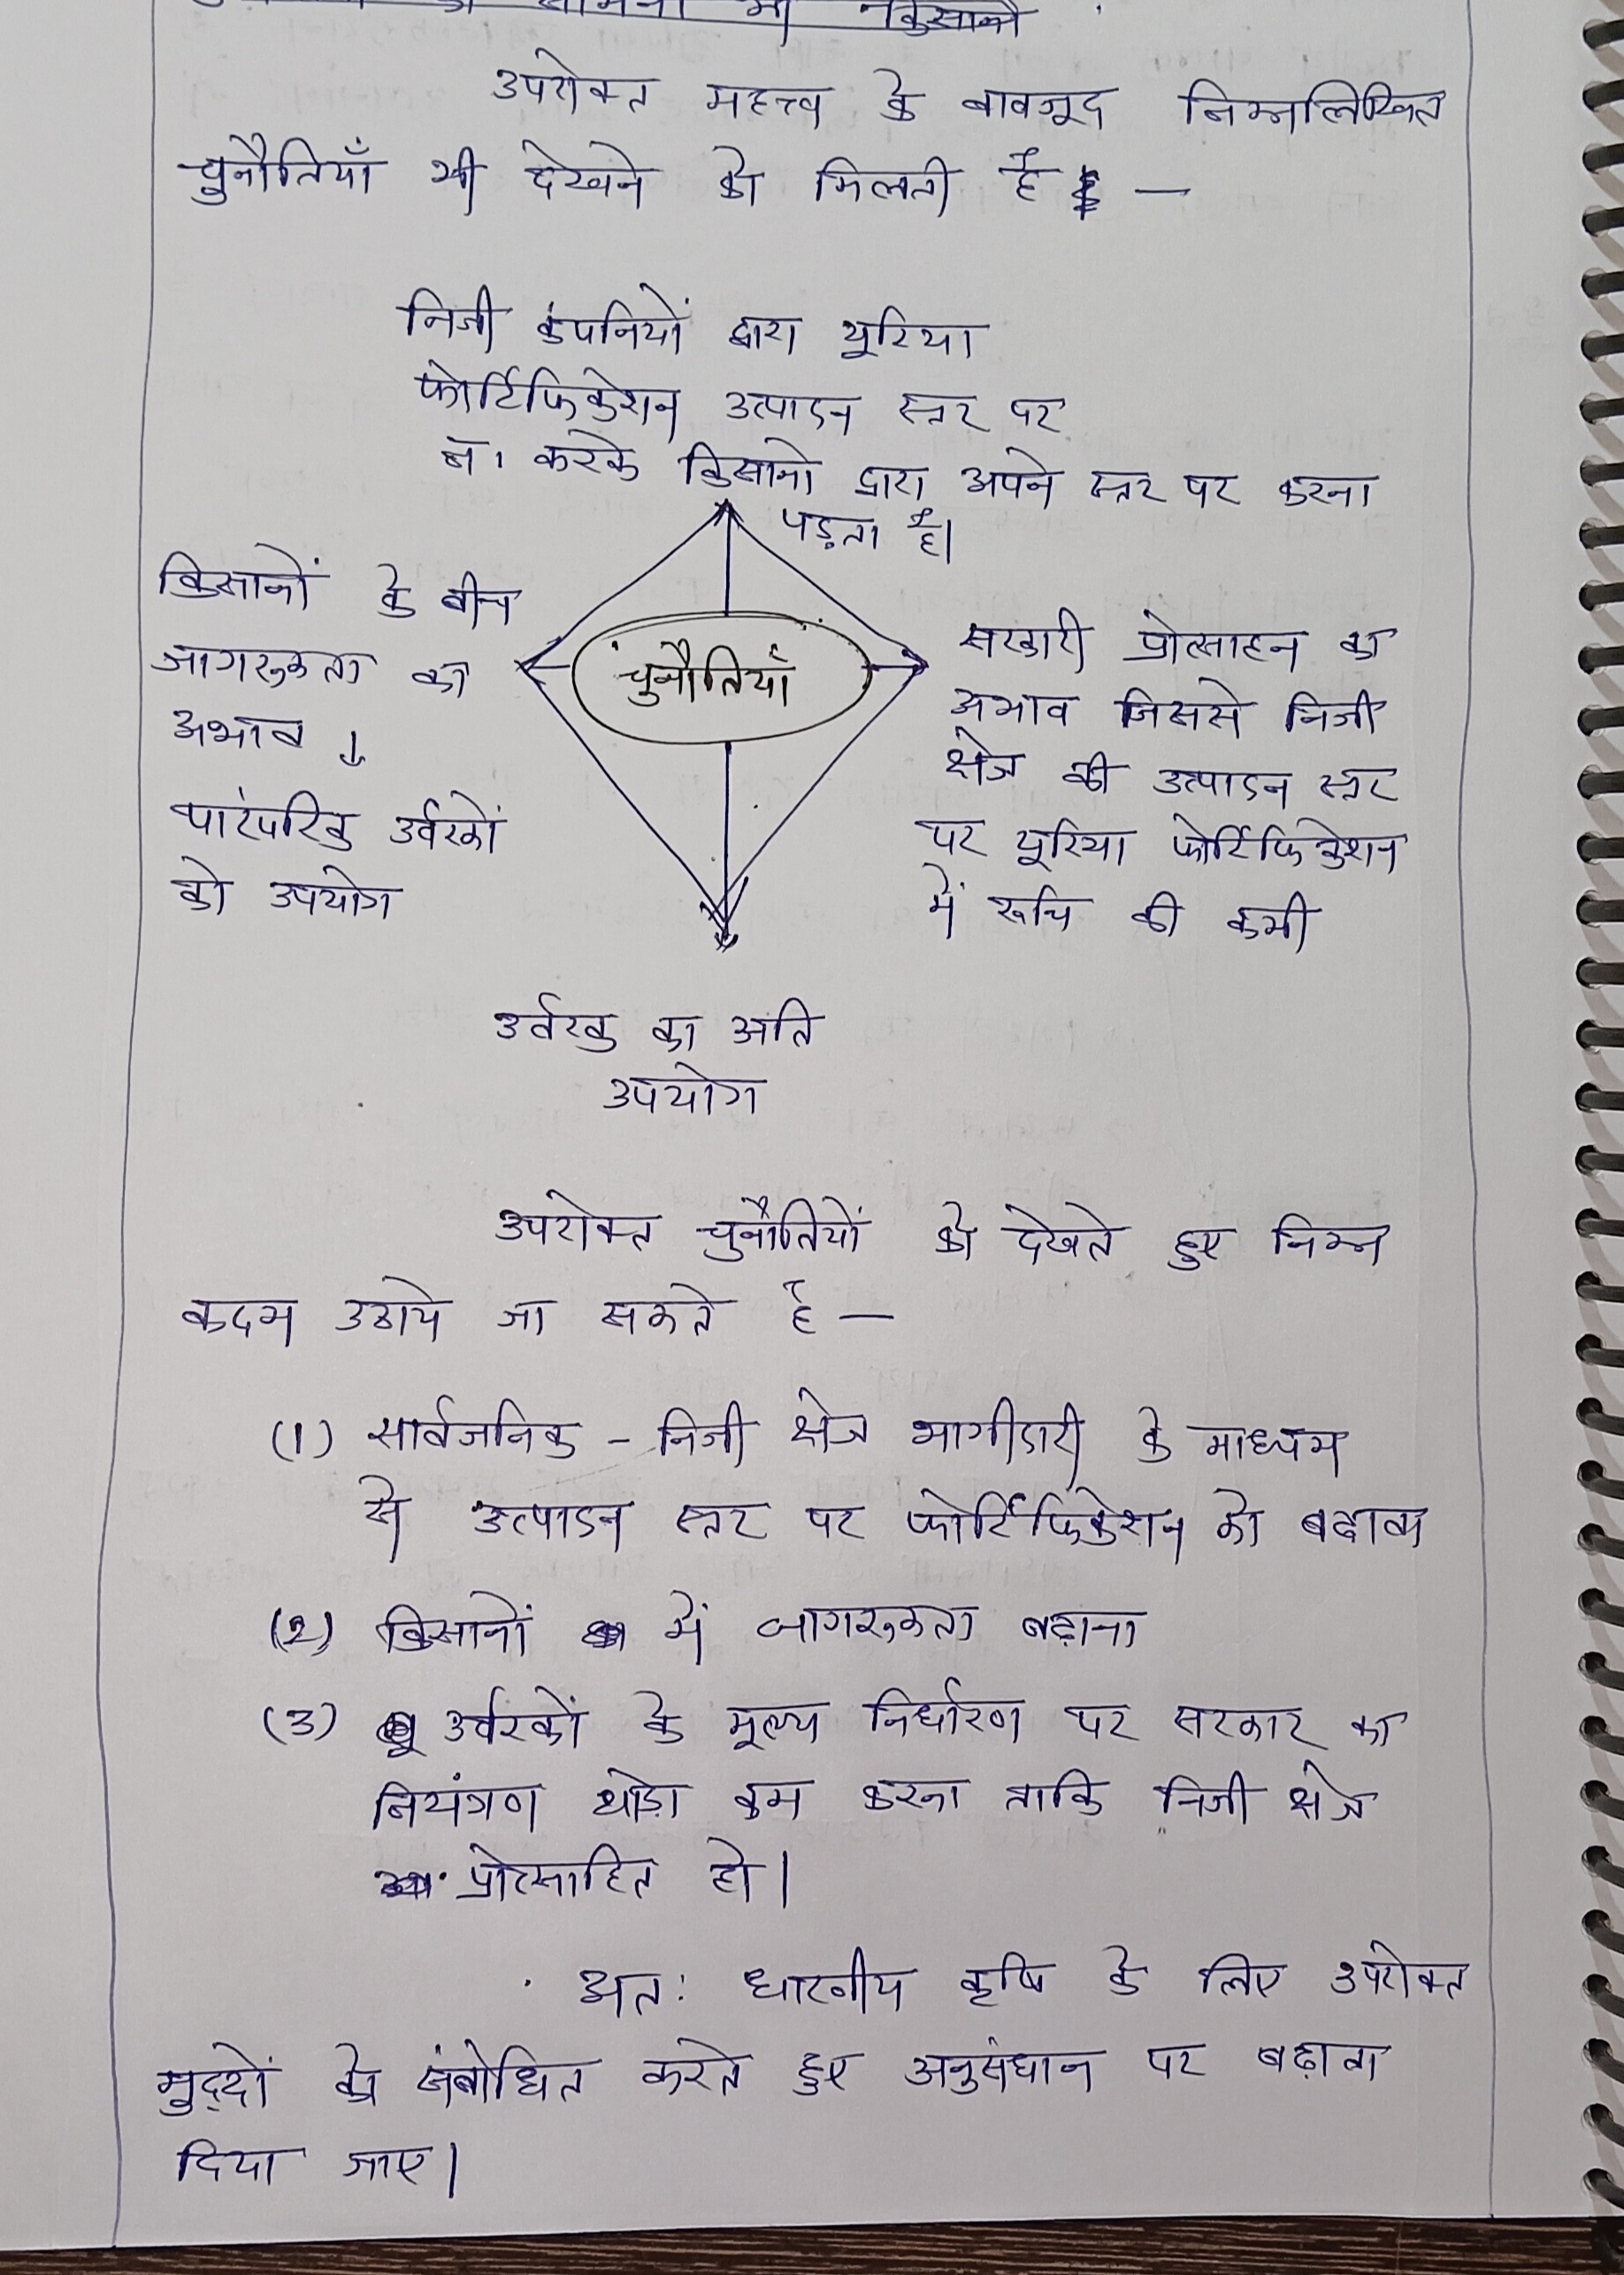 उपरोक्त महत्त्व के बावजूद निम्नलिखित
चुनौतियाँ भी देखने को मिलती है —
निजी कंपनियों द्वारा यूरिया
फोर्टिफिकेशन उत्पादन स्तर पर
न करके किसानो द्वारा अपने स्तर पर करना
पड़ता है।
किसानों के बीच
जागरूकता का
अभाव ↓
पारंपरिक उर्वरकों
को उपयोग
चुनौतियाँ
सरकारी प्रोत्साहन का
अभाव जिससे निजी
क्षेत्र की उत्पादन स्तर
पर यूरिया फोर्टिफिकेशन
में रूचि की कमी
उर्वरक का अति
उपयोग
उपरोक्त चुनौतियों को देखते हुए निम्न
कदम उठाये जा सकते है —
(1) सार्वजनिक - निजी क्षेत्र भागीदारी के माध्यम
से उत्पादन स्तर पर फोर्टिफिकेशन को बढ़ावा
(2) किसानों में जागरूकता बढ़ाना
(3) उर्वरकों के मूल्य निर्धारण पर सरकार का
नियंत्रण थोड़ा कम करना ताकि निजी क्षेत्र
प्रोत्साहित हो।
अतः भारतीय कृषि के लिए उपरोक्त
मुद्दों को संबोधित करते हुए अनुसंधान पर बढ़ावा
दिया जाए।